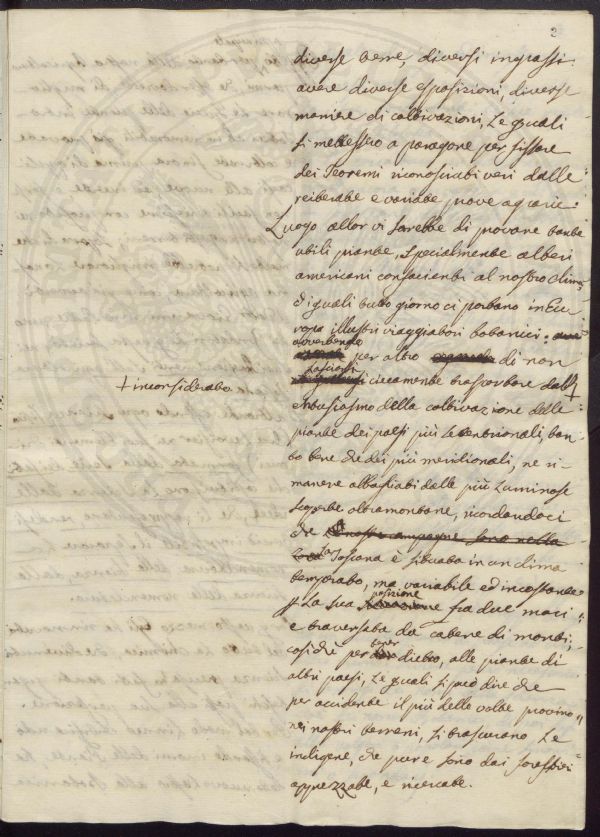 2
diverse terre, diversi ingrassi
avere diverse esposizioni, diverse
maniere di coltivazioni, le quali
si mettessero a paragone per fissare
dei Teoremi riconosciuti veri dalle
reiterate e variate prove agrarie.
Luogo allor vi sarebbe di provare tante
utili piante, specialmente alberi
americani confacienti al nostro clima
di quali tutto giorno ci portano in Eu=
ropa illustri viaggiatori botanici.
avvertendo per altro di non
lasciarsi ciecamente trasportare dall'+
+ inconsiderato
entusiasmo della coltivazione delle
piante dei paesi più settentrionali, tan=
to bene che dei più meridionali, ne ri=
manere abbagliati dalle più luminose
scoperte oltramontane, ricordandoci
che le nostre campagne sono nella
la Toscana è situata in un clima
temperato, ma variabile ed incostante
p. la sua posizione fra due mari
e traversata da catene di monti;
così che per tener dietro, alle piante di
altri paesi, le quali si può dire che
per accidente il più delle volte provino=
nei nostri terreni, si trascurano le
indigene, che pure sono dai forestieri
apprezzate, e ricercate.